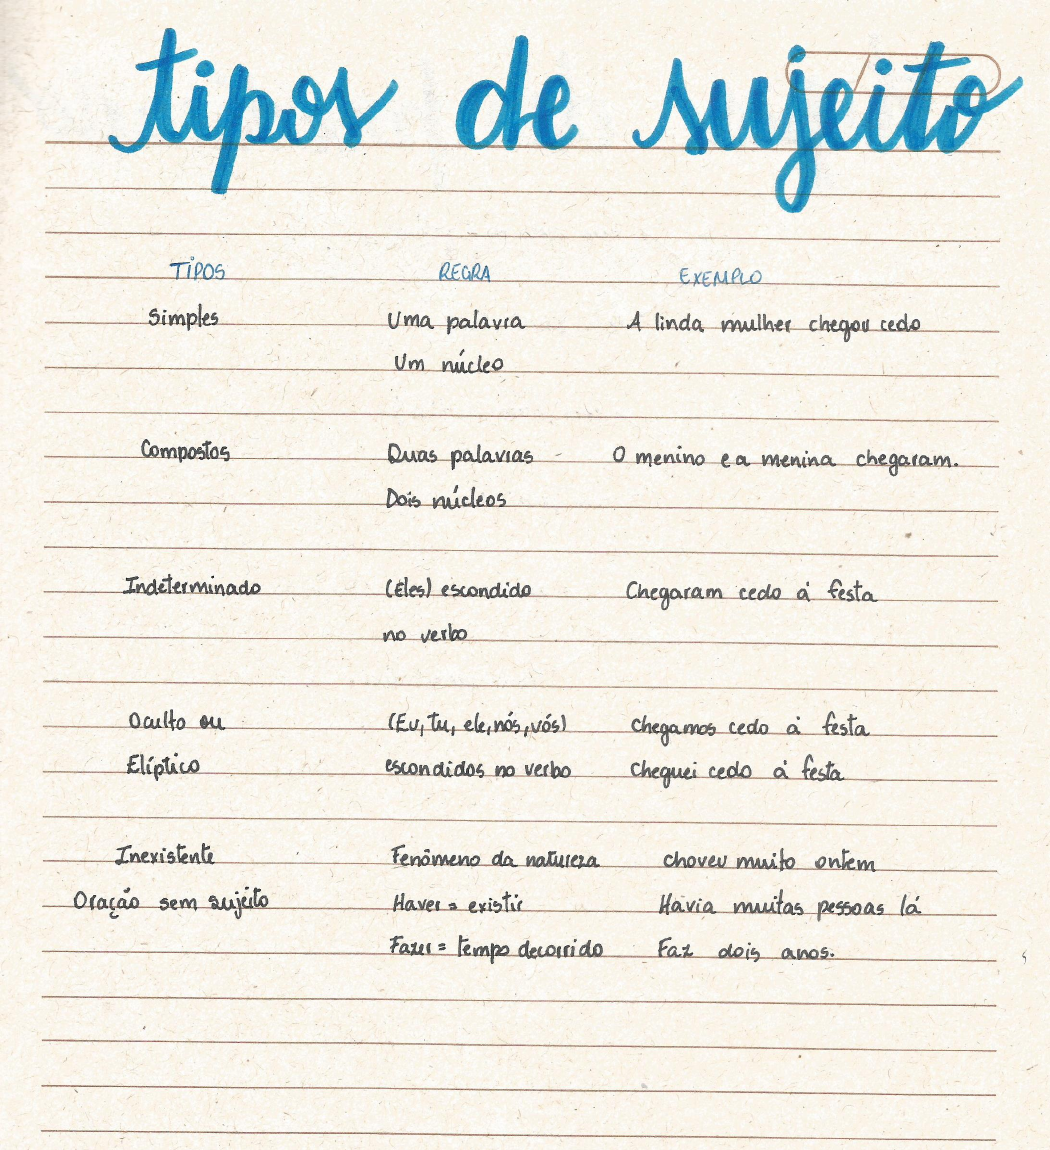 tipos de sujeito
TIPOS REGRA EXEMPLO
Simples Uma palavra A linda mulher chegou cedo
Um núcleo
Compostos Duas palavras - O menino e a menina chegaram.
Dois núcleos
Indeterminado (Eles) escondido Chegaram cedo à festa
no verbo
Oculto ou (Eu, tu, ele, nós, vós) Chegamos cedo à festa
Elíptico escondidos no verbo Cheguei cedo à festa
Inexistente Fenômeno da natureza choveu muito ontem
Oração sem sujeito Haver = existir Havia muitas pessoas lá
Fazer = tempo decorrido Faz dois anos.